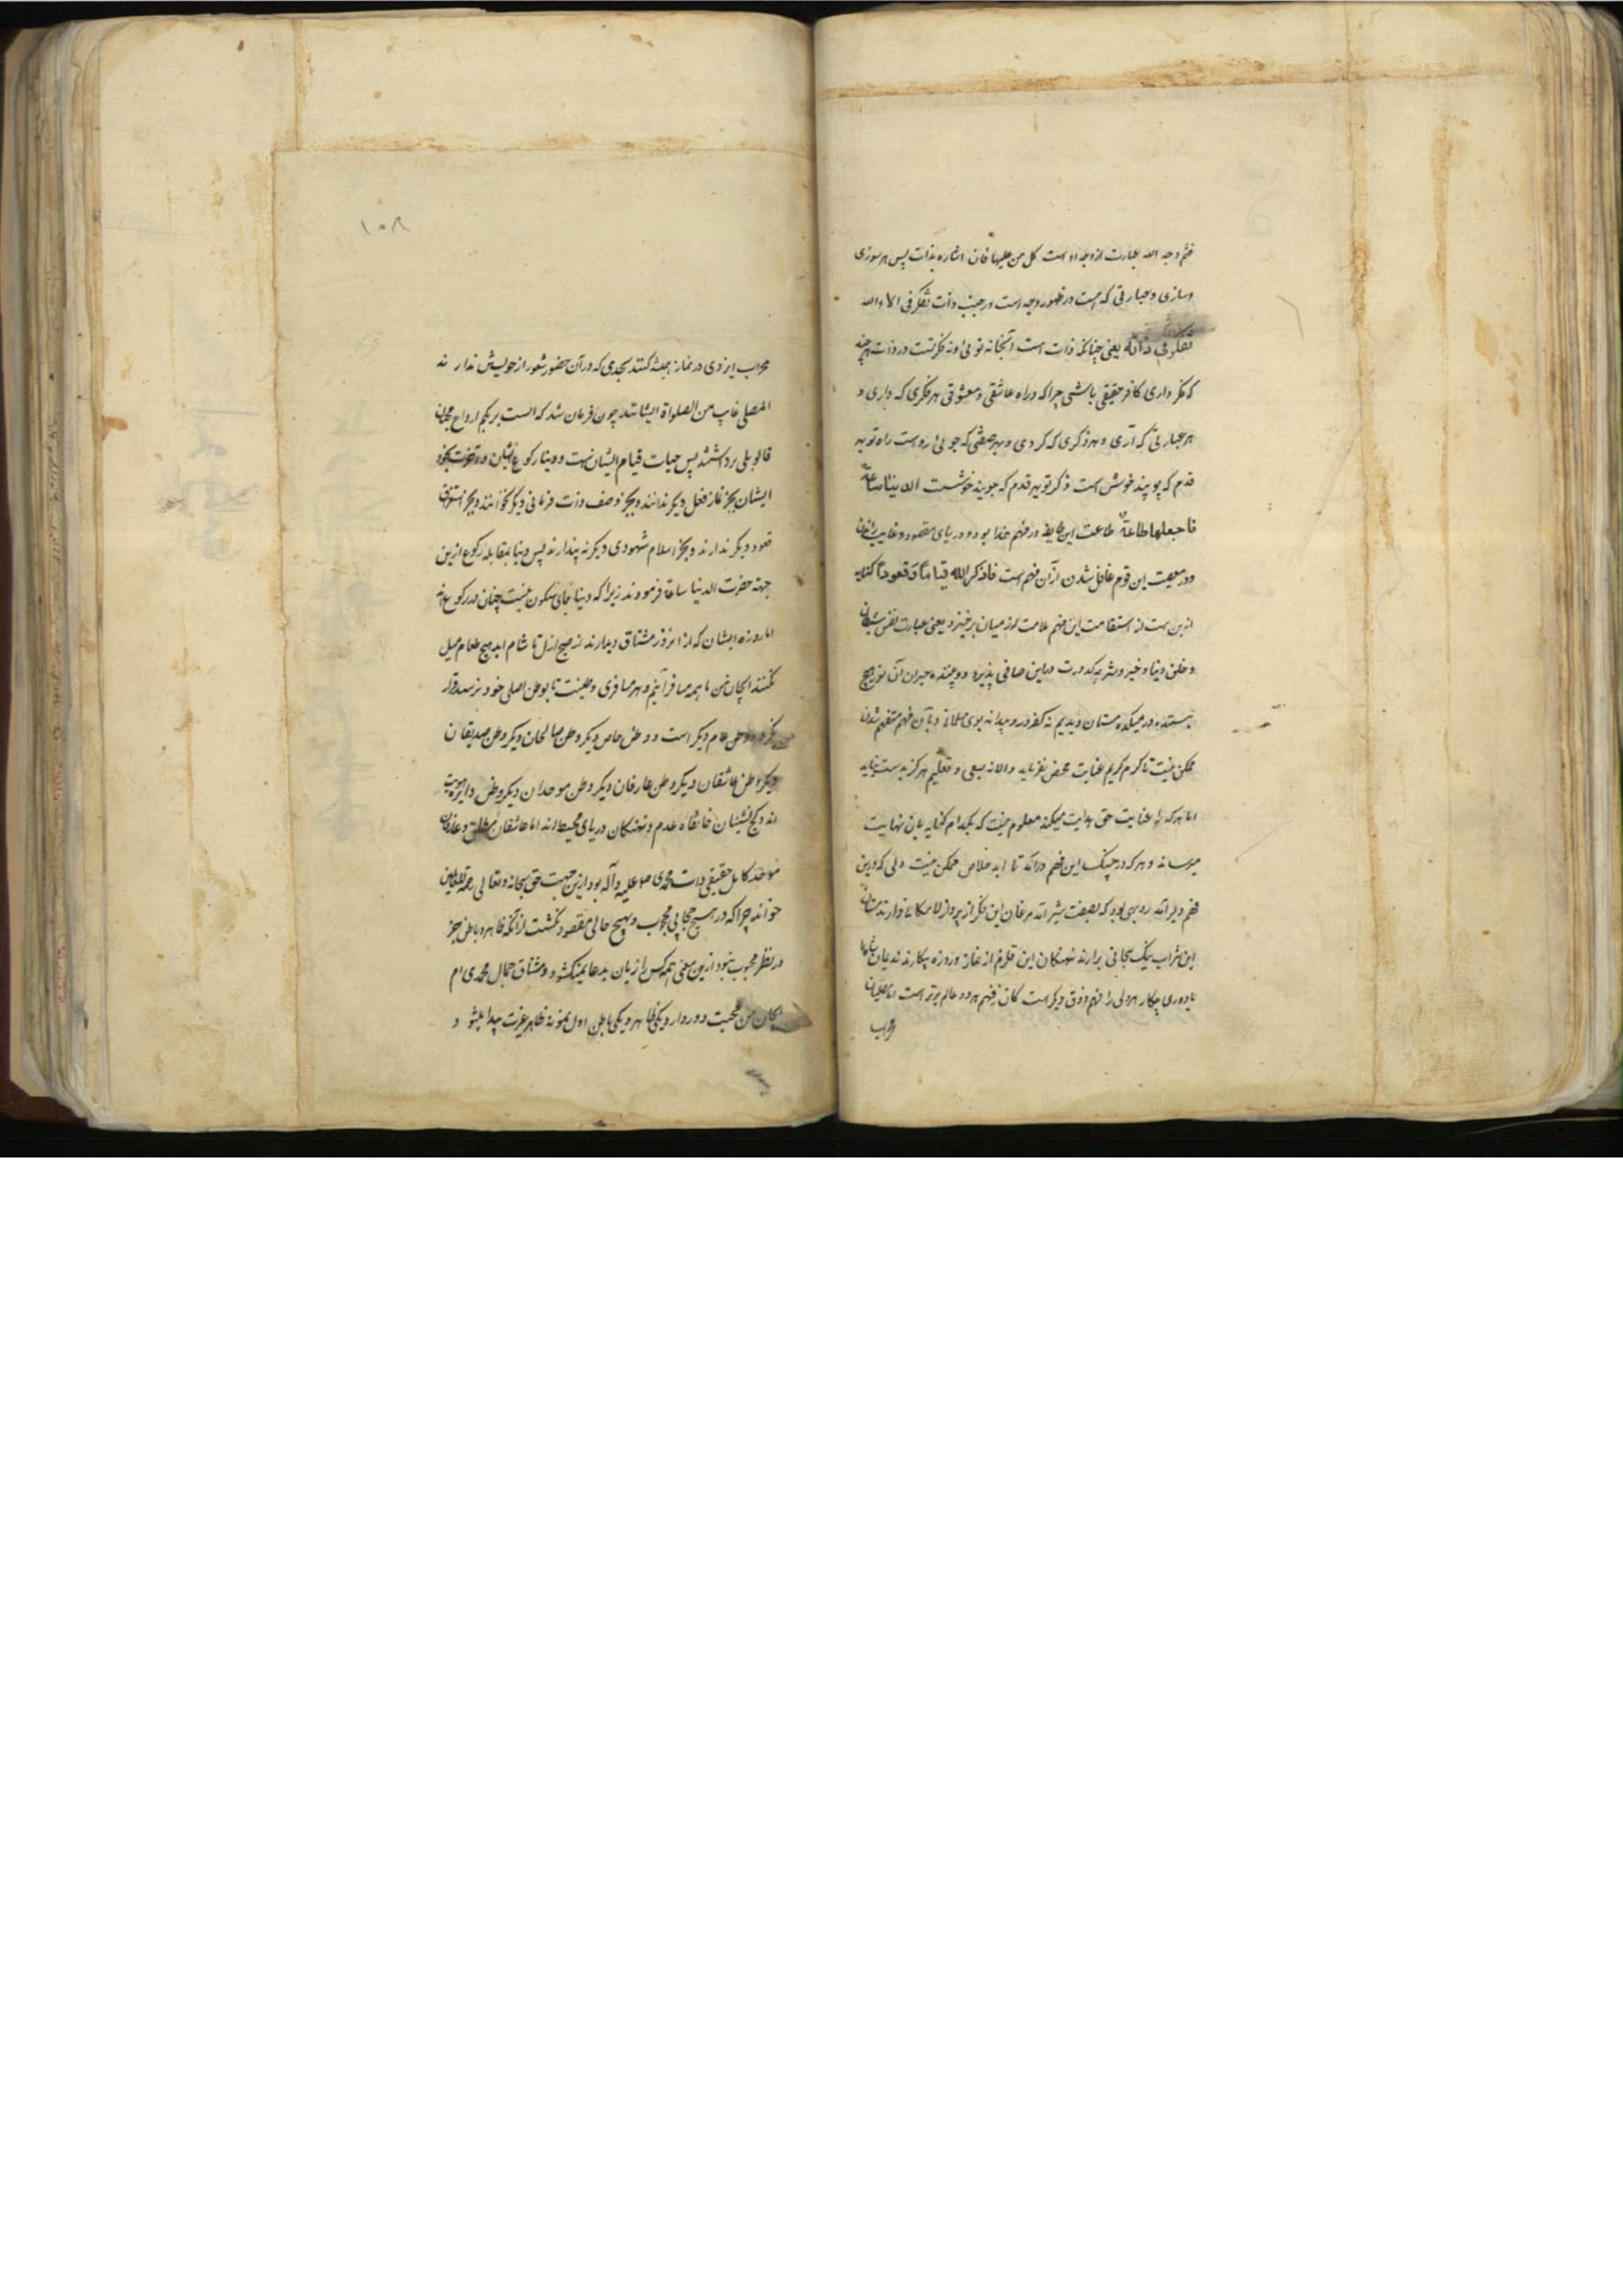 فثم وجه الله عبارت از وجه او است کل من علیها فان اشاره بذات پس هر سوزی
وسازی و عبارتی که هست در ظهور وجه است و رجب ذات تفکر فی الاء الله
تفکروفی ذاته یعنی چنانکه ذات است آنجا نه توئی و نه فکر تست در ذات هرچند
که فکر داری کافر حقیقی باشی چرا که در راه عاشقی و معشوقی هر فکری که داری و
هر عبارتی که آری و هر ذکری که کردی و بهر صفتی که جوئی رواست راه تو بهر
قدم که پویند خوش است ذکر تو بهر قدم که جویند خوشست الدنیا ساعة
فاجعلها طاعة طاعت این طایفه در فهم خدا بود و دریای مقصود و غایت
و در معصیت این قوم غافل شدن از آن فهم است فاذکر الله قیاماً و قعوداً کنایه
ازین هست از استقامت این فهم علامت از میان برخیزد یعنی عبارت نفس شیطانی
و خلق دنیا و خیر و شر و کدورت صافی پذیرد و حیران آن نور هیچ
در میکده مستان دیدیم نه کفر درو پیدا نه بوی مسلمانی و بآن فهم متفهم شدن
ممکن نیست تا کرم کریم عنایت محض نفرماید والا نه بسعی و تعلیم هرگز بدست نیاید
اما هر که را عنایت حق هدایت میکند معلوم نیست که بکدام کنایه بآن نهایت
میرساند و هر که در چنگ این فهم درآید تا ابد خلاص ممکن نیست دلی که درین
فهم دیر آمد روبهی بود که بصفت شیر آمد مرغان این فکر از پرواز لامکان دارند مستان
این شراب بیک سبحانی برارند نهنگان این قلزم از نماز و روزه بیکارند ندیمان
باده‌ری چکار هر دلی را فهم و ذوق دیگر است کان فهم هر دو عالم برتر است اما مصلیان
محراب
۱۰۸
محراب ایزدی در نماز همیشه کنند بحدی که در آن حضور شعور از خویش ندارند
المصلی غایب من الصلواة ایشانند چون فرمان شد که الست بربکم ارواح محبان
قالو بلی برداشتند پس حیات قیام ایشان است و دنیا رکوع ایشان و آخرت سجود
ایشان بجز نماز فعل دیگر ندانند و بجز وصف ذات فرمانی دیگر نخوانند و بجز استغراق
قعود دیگر ندارند و بجز اسلام شهودی دیگر نه پندارند پس دنیا بمقابله رکوع ازین
جهة حضرت الدنیا ساعة فرمودند زیرا که دنیا جای سکون نیست چنان در رکوع
اما روزه ایشان که از امر ذر مشتاق دیدارند از صبح ازل تا شام ابد هیچ طعام میل
نکنند ایجان من ما همه مسافرآنیم و هر مسافری وطنیست تا بوطن اصلی خود نرسد قرار
نگیرد وطن عام دیگر است و وطن خاص دیگر وطن صالحان دیگر وطن صدیقان
دیگر وطن عاشقان دیگر وطن عارفان دیگر وطن موحدان دیگر وطن دایره هویت
اند و کنج نشینان خانقاه عدم و نهنگان دریای محیط اند اما عاشقان مطلق و عارفان
موحد کامل حقیقی ذات محمدی ص علیه وآله بود ازین جهت حق سبحانه و تعالی رحمة للعالمین
خواند چرا که در هیچ حجابی محجوب و بهیچ حالی مقصود نگشت از آنکه ظاهر و باطن جز
در نظر محبوب نبود ازین معنی همه کس را زبان بدعا نمیکشود و مشتاق جمال محمدی ام
ایجان من محبت دو رو دارد یکی ظاهر و یکی باطن اول نمونه ظاهر عزت پیدا میشود